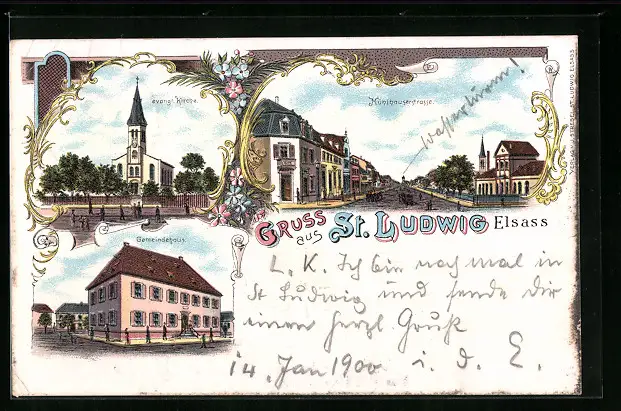 evangl. Kirche.
Mühlhauserstrasse.
Wasserturm!
Gemeindehaus.
GRUSS
aus
ST. LUDWIG Elsass
L. K. Ich bin noch mal in
St Ludwig und sende Dir
einen herzl. Gruß
14. Jan 1900 i. d. E.
ST. LUDWIG ELSASS